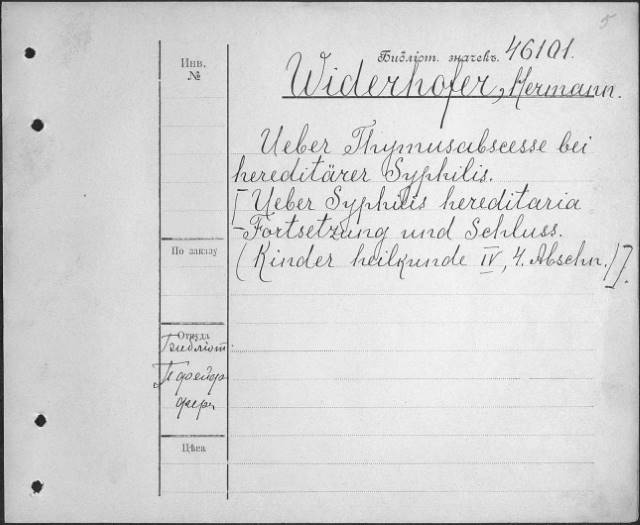 5
Инв.
№
Библіот. значекъ. 46101.
Widerhofer, Hermann.
Ueber Thymusabscesse bei
hereditärer Syphilis.
[Ueber Syphilis hereditaria
-Fortsetzung und Schluss.
(Kinder heilkunde IV, 4. Abschn.)].
По заказу
Откуда
Библіот.
Цѣна